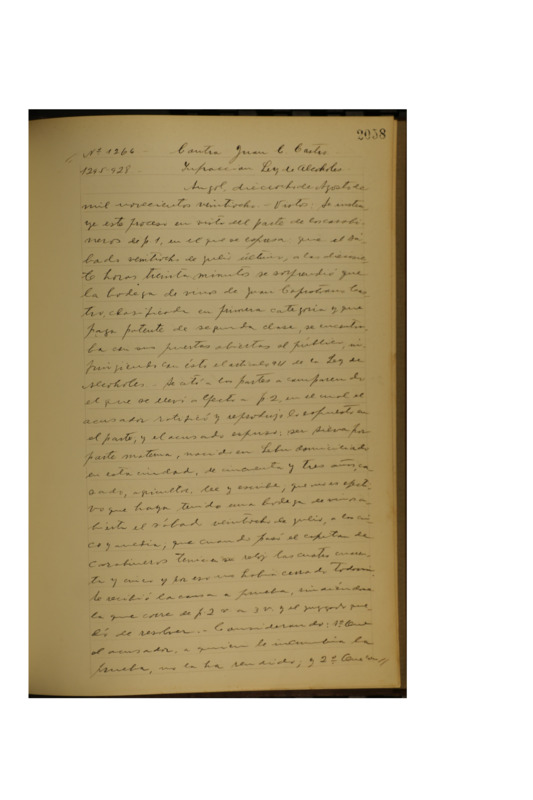 2058
Nº 1266 - Contra Juan C. Castro
1205-928 - Infraccion Ley de Alcoholes
Angol, dieciocho de Agosto de
mil novecientos veintiocho. - Vistos: Se instru
ye este proceso en vista del parte de carabi
neros de f 1, en el que se expresa que el Sá
bado veintiocho de julio último, a las
horas treinta minutos se sorprendió que
la bodega de vinos de Juan Cas
tro, clasificada en primera categoria y que
paga patente de segunda clase, se encontra
ba con sus puertas abiertas al público, in
fringiendo con ésto el artículo de la Ley de
Alcoholes. - Se citó a las partes a comparendo
el que se llevó a efecto a f 2, en el cual el
acusador ratificó y reprodujo lo expuesto en
el parte, y el acusado expuso: ser Silva por
parte materna, nacido en Lebu domiciliado
en esta ciudad, de cincuenta y tres años, ca
sado, agricultor, lee y escribe, que no es efecti
vo que haya tenido una bodega de vinos a
bierta el sábado veintiocho de julio, a las cin
co y media, que cuando pasó el capitan de
carabineros tenia su reloj las cuatro cuaren
ta y cinco y por eso no habia cerrado todavia.
Se recibió la causa a prueba, rindiéndose
la que corre de f 2 v. a 3 v. y el juzgado que
dó de resolver. - Considerando: 1º Que
el acusador, a quien le incumbia la
prueba, no la ha rendido; y 2º Que